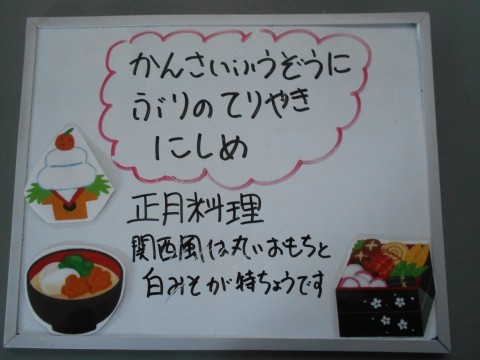 かんさいふうぞうに
ぶりのてりやき
にしめ
正月料理
関西風は丸いおもちと
白みそが特ちょうです